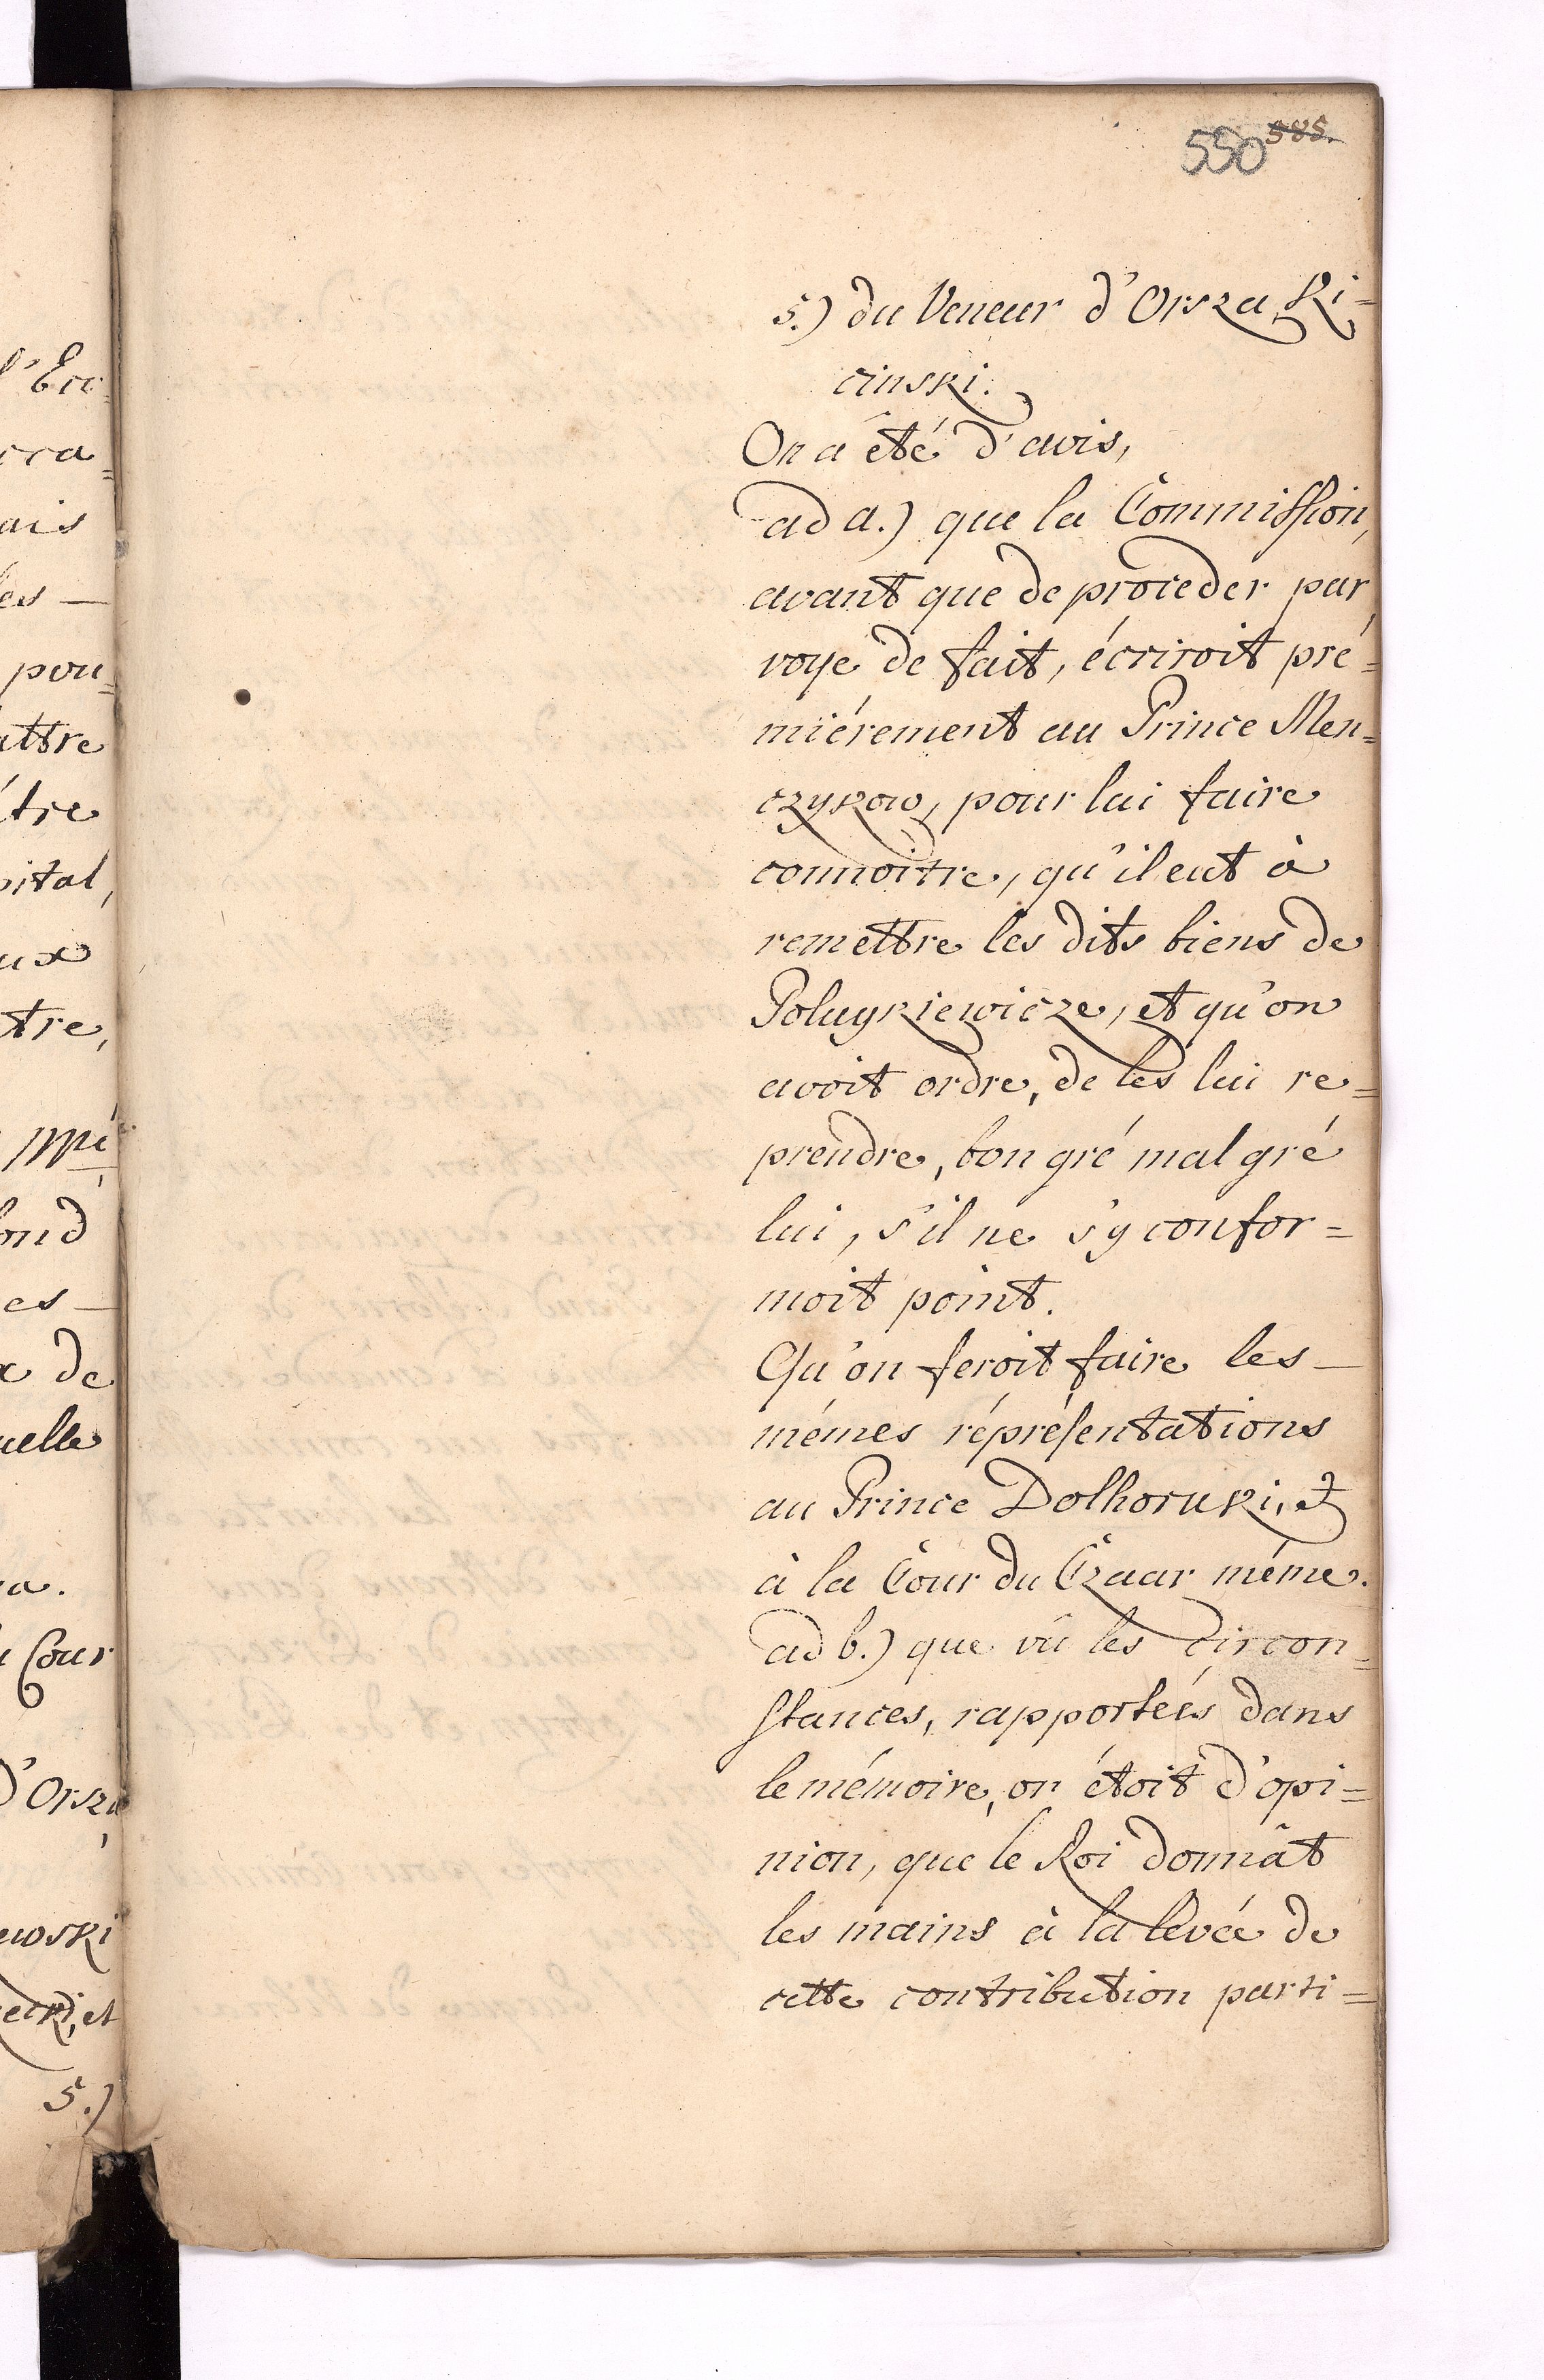 550 585.
5.) du Veneur d'Orsza Ki=
cinski.
On a été d'avis,
ad a.) que la Commission,
avant que de proceder par
voye de fait, écriroit pré=
miérement au Prince Men=
czykow, pour lui faire
connoitre, qu'il eut à
remettre les dits biens de
Polugkiewicze, et qu'on
avoit ordre, de les lui re=
prendre, bon gré mal gré
lui, s'il ne s'y confor=
moit point.
Qu'on feroit faire les
mémes répréſentations
au Prince Dolhoruki, et
à la Cour du Czaar méme.
ad b.) que vû les circon=
ſtances, rapporteés dans
le mémoire, on étoit d'opi=
nion, que le Roi donnât
les mains à la levée de
cette contribution parti=
l'Ecc
cra=
ais
les
pou=
attre
étre
pital,
aux
tre,
ond
es
x de
uelle
a.
Cour
d'Orsza
ewski
ecki, et
5.)